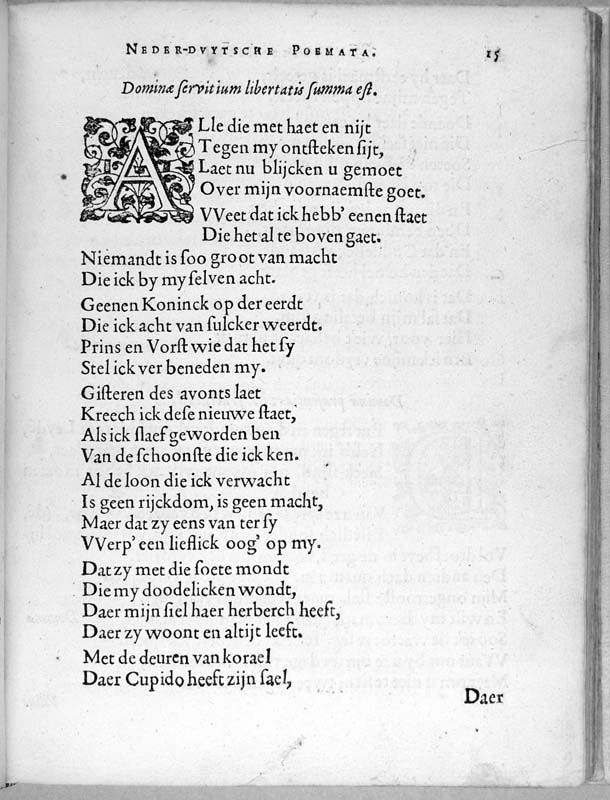 NEDER-DVYTSCHE POEMATA. 15
Dominæ ſervitium libertatis ſumma eſt.
ALle die met haet en nijt
Tegen my ontſteken ſijt,
Laet nu blijcken u gemoet
Over mijn voornaemſte goet.
VVeet dat ick hebb' eenen ſtaet
Die het al te boven gaet.
Niemandt is ſoo groot van macht
Die ick by my ſelven acht.
Geenen Koninck op der eerdt
Die ick acht van ſulcker weerdt.
Prins en Vorſt wie dat het ſy
Stel ick ver beneden my.
Giſteren des avonts laet
Kreech ick deſe nieuwe ſtaet,
Als ick ſlaef geworden ben
Van de ſchoonſte die ick ken.
Al de loon die ick verwacht
Is geen rijckdom, is geen macht,
Maer dat zy eens van ter ſy
VVerp' een lieflick oog' op my.
Dat zy met die ſoete mondt
Die my doodelicken wondt,
Daer mijn ſiel haer herberch heeft,
Daer zy woont en altijt leeft.
Met de deuren van korael
Daer Cupido heeft zijn ſael,
Daer